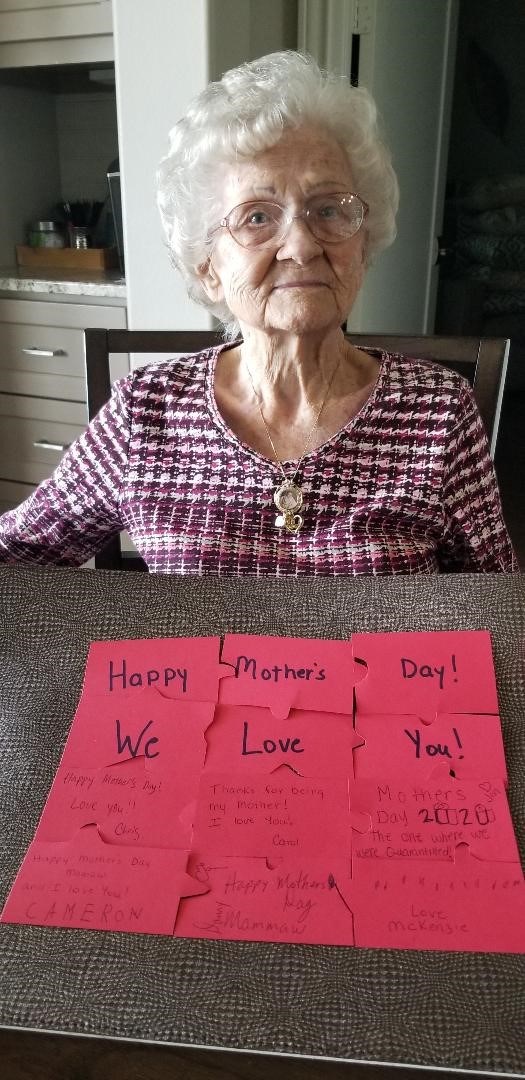 Happy Mother's Day!
We Love You!
Happy Mother's Day!
Love you!!
Chris
Thanks for being
my Mother!
I love You.
Carol
Mothers
Day 2020
The one where we
were Quarantined!
Happy Mother's Day
Mamaw
and I love You!
CAMERON
Happy Mothers
Day
Mammaw
Love
McKenzie